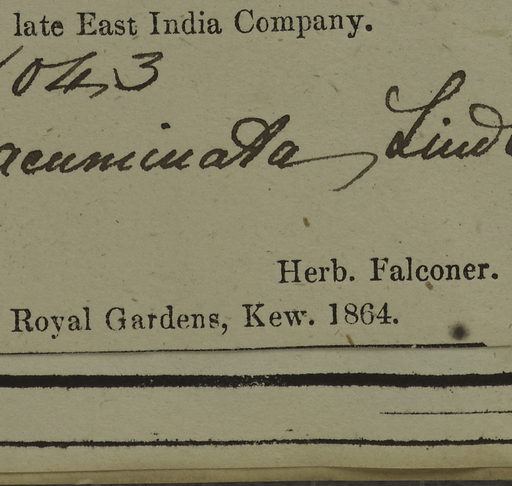 late East India Company.
1043
acuminata Lindl
Herb. Falconer.
Royal Gardens, Kew. 1864.